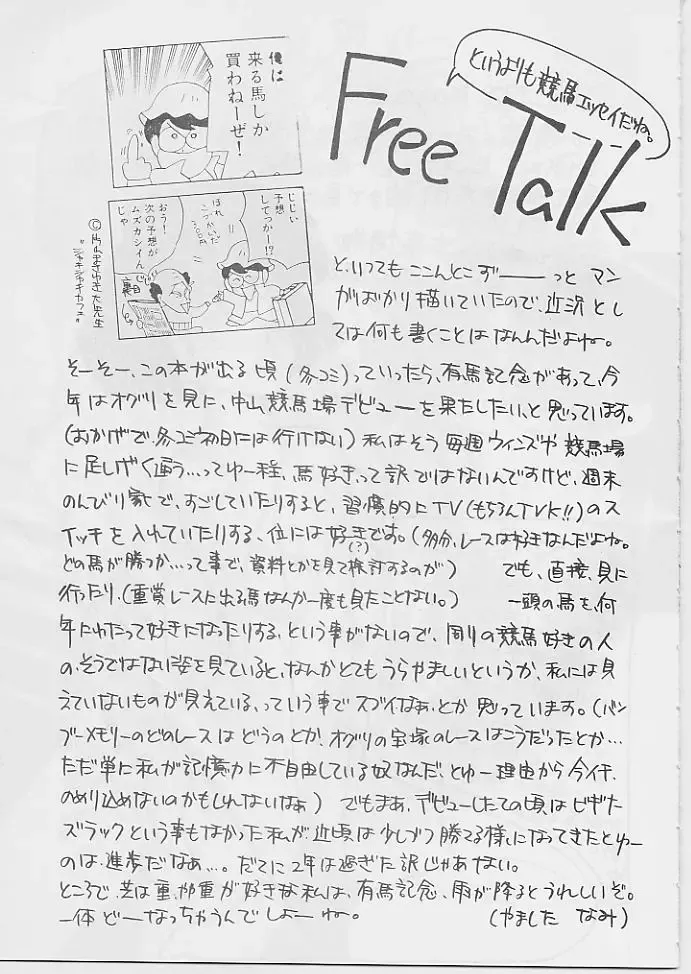 俺は
来る馬しか
買わねーぜ!
じじい
予想
してっかー!?
ほれ
こづかいだ
300円
おう!
次の予想が
ムズカシイん
じゃ
裏目
©片山まさゆき大先生
"ジャキジャキカフェ"
というよりも競馬エッセイだね。
Free Talk
と、いってもここんとこずーーっと マン
がばかり描いていたので、近況とし
ては何も書くことはなんんだよね。
そーそー、この本が出る頃(冬コミ)っていったら、有馬記念があって、今
年はオグリを見に、中山競馬場デビューを果たしたい、と思っています。
(おかげで、冬コミ初日には行けない) 私はそう毎週ウィンズや競馬場
に足しげく通う…ってゆー程、馬好きって訳ではないんですけど、週末
のんびり家で、すごしていたりすると、習慣的にTV(もちろんTVK!!)のス
イッチを入れていたりする、位には好きです。(多分、レースは好きなんだよね。
(?)
どの馬が勝つか…って事で、資料とかを見て検討するのが) でも、直接、見に
行ったり、(重賞レースに出る馬なんか一度も見たことない。) 一頭の馬を、何
年にわたって好きになったりする、という事がないので、周りの競馬好きの人
の、そうではない姿を見ていると、なんかとてもうらやましいというか、私には見
えていないものが見えている、っていう事でスゴイなぁ、とか思っています。(バン
ブーメモリーのどのレースはどうのとか、オグリの宝塚のレースはこうだったとか…
ただ単に私が記憶力に不自由している奴なんだ、とゆー理由から今イチ、
のめり込めないのかもしれないなぁ) でもまあ、デビューしたての頃はビギナー
ズラックという事もなかった私が近頃は少しづつ勝てる様になってきたとゆー
のは、進歩だなぁ…。だてに2年は過ぎた訳じゃあない。
ところで、芝は重、やや重が好きな私は、有馬記念、雨が降るとうれしいぞ。
一体どーなっちゃうんでしょーね。 (やました なみ)